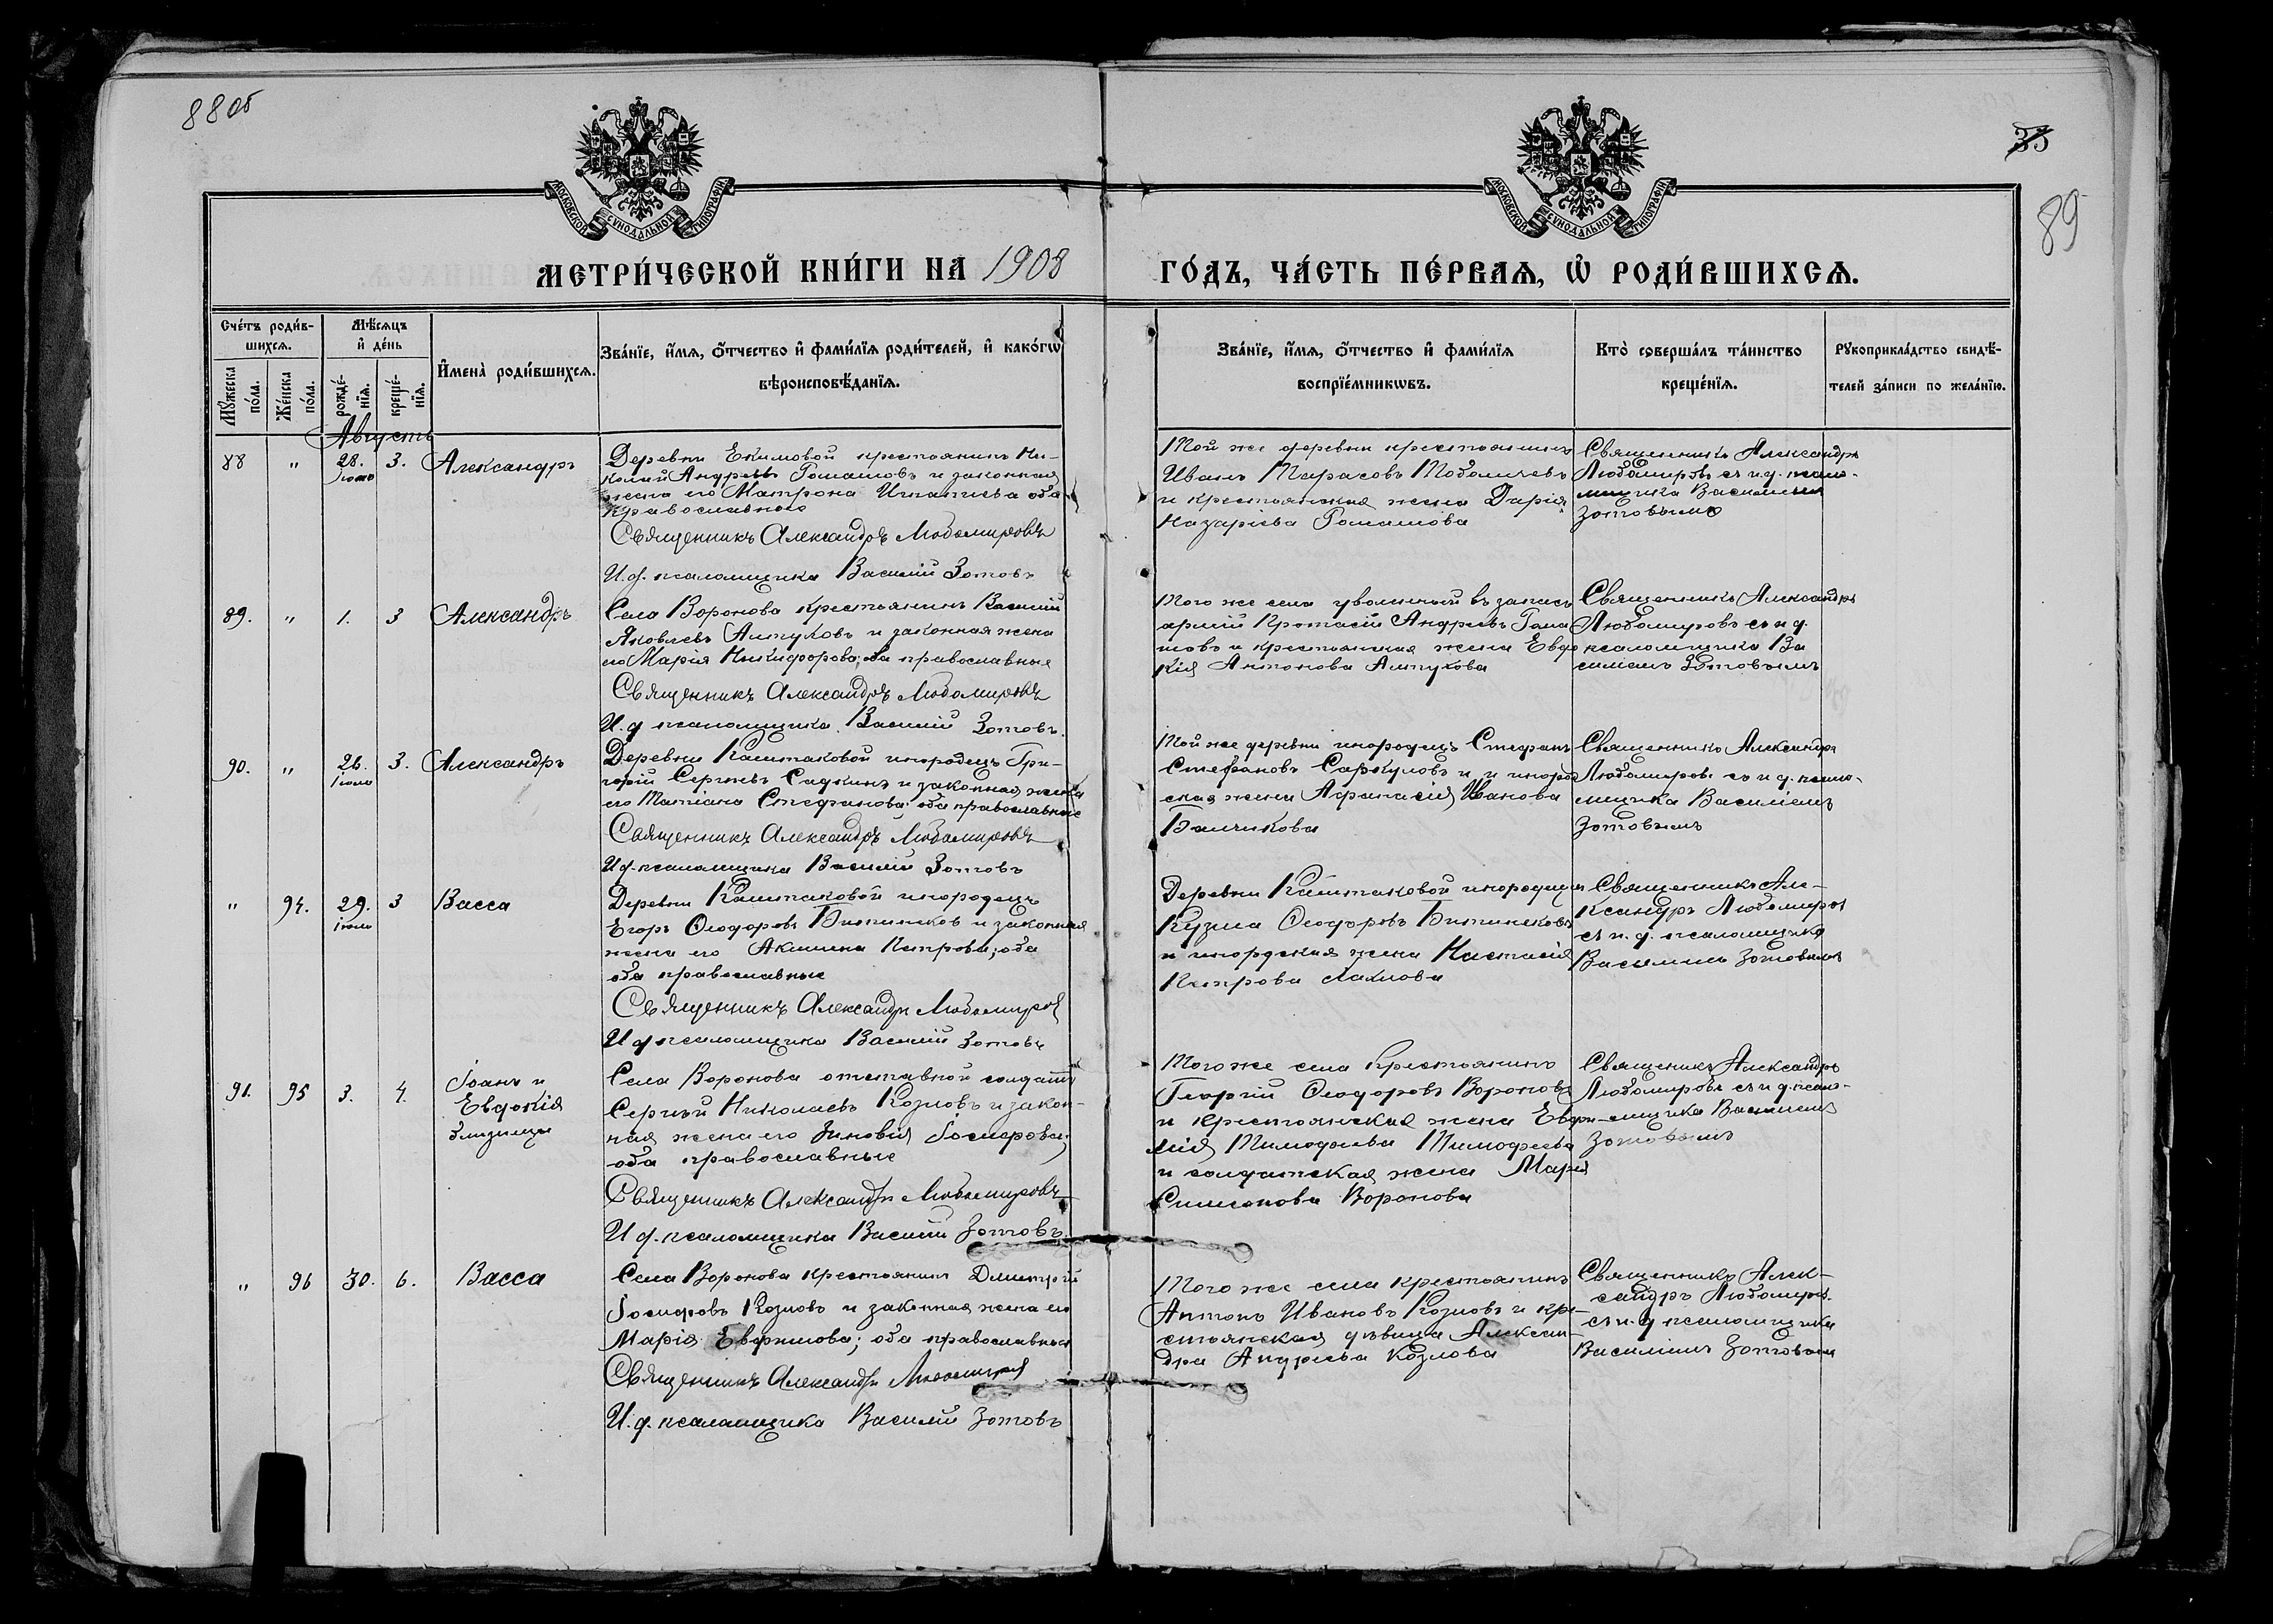 88 об
35
89
МОСКОВСКОЙ СУНОДАЛЬНОЙ ТИПОГРАФІИ
МОСКОВСКОЙ СУНОДАЛЬНОЙ ТИПОГРАФІИ
МЕТРИ́ЧЕСКОЙ КНИ́ГИ НА 1908
ГО́ДЪ, ЧА́СТЬ ПЕ́РВАѦ, Ѽ РОДИ́ВШИХСѦ.
Сче́тъ роди́в-
шихсѧ.
Мꙋ́жеска по́ла.
Же́нска по́ла.
Мѣ́сѧцъ
и҆ де́нь
рожде́-
нїѧ.
креще́-
нїѧ.
И҆мена̀ роди́вшихсѧ.
Зва́нїе, и҆́мѧ, ѻ҆́тчество и҆ фами́лїѧ роди́телей, и҆ како́гѡ
вѣроисповѣ́данїѧ.
Зва́нїе, и҆́мѧ, ѻ҆́тчество и҆ фами́лїѧ
воспрїе́мникѡвъ.
Кто̀ соверша́лъ та́инство
креще́нїѧ.
Рꙋкоприкла́дство свидѣ́-
телей за́писи по жела́нїю.
Августъ
88 " 28. 3. Александръ
іюля
Деревни Екимовой крестьянинъ Ни-
колай Андреевъ Ромашовъ и законная
жена его Матрона Игнатиева оба
православные
Священникъ Александръ Любомировъ
И.д. псаломщика Василій Зотовъ
Той же деревни крестьянинъ
Иванъ Тарасовъ
и крестьянская жена Дарія
Назаріева Ромашова
Священникъ Александръ
Любомировъ съ и.д. псало-
мщика Василіемъ
Зотовымъ
89. " 1. 3 Александръ
Села Воронова крестьянинъ Василій
Яковлевъ Алтуховъ и законная жена
его Марія Никифорова; оба православные
Священникъ Александръ Любомировъ
И.д псаломщика Василій Зотовъ.
Того же села уволенный въ запасъ
арміи Протасій Андреевъ Рома
шовъ и крестьянская жена Евдо
кія Антонова Алтухова
Священникъ Александръ
Любомировъ съ и д.
псаломщика Ва
силіемъ Зотовымъ
90. " 26. 3. Александръ
іюля
Деревни Каштаковой инородецъ Гри-
горій Сергѣевъ Садкинъ и законная жена
его Татіана Стефанова; оба православные
Священникъ Александръ Любомировъ
И д. псаломщика Василій Зотовъ
Той же деревни инородецъ Стефанъ
Стефановъ Саркуловъ и и инород
ская жена Афанасія Иванова
Священникъ Александръ
Любомировъ съ и д. псало-
мщика Василіемъ
Зотовымъ
" 94. 29. 3 Васса
іюля
Деревни Каштаковой инородецъ
Егоръ Ѳеодоровъ и законная
жена его Акилина Петрова; оба
оба православные
Священникъ Александръ Любомировъ
И д псаломщика Василій Зотовъ
Деревни Каштаковой инородецъ
Кузма Ѳеодоровъ
и инородская жена Настасія
Петрова
Священникъ Але-
ксандръ Любомировъ
съ и. д. псаломщика
Василіемъ Зотовымъ
91. 95 3. 4. Іоанъ и
Евдокія
близнецы
Села Воронова отставной солдатъ
Сергѣй Николаевъ Козловъ и закон-
ная жена его Зиновія Іосифова;
оба православные
Священникъ Александръ Любомировъ
И д. псаломщика Василій Зотовъ.
Того же села крестьянинъ
Георгій Ѳеодоровъ Вороновъ
и крестьянская жена Евфи-
мія Тимофеева
и солдатская жена Марія
Симеонова Воронова
Священникъ Александръ
Любомировъ съ и д. псало-
мщика Василіемъ
Зотовымъ
" 96 30. 6. Васса
Села Воронова крестьянинъ Дмитрій
Іосифовъ Козловъ и законная жена его
Марія Евфимова; оба православные
Священникъ Александръ Любомировъ
И. д. псаломщика Василій Зотовъ
Того же села крестьянинъ
Антонъ Ивановъ Козловъ и кре-
стьянская дѣвица Алексан-
дра Андреева Козлова
Священникъ Алек-
сандръ Любомировъ
съ и. д псаломщика
Василіемъ Зотовымъ